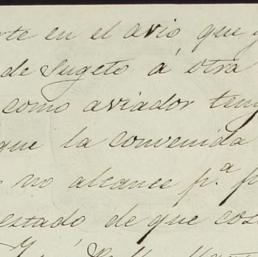 rte en el avio, que y
de Sugeto á otra
como aviador ten
que la convenida
no alcance p.ª p
estado de que cos